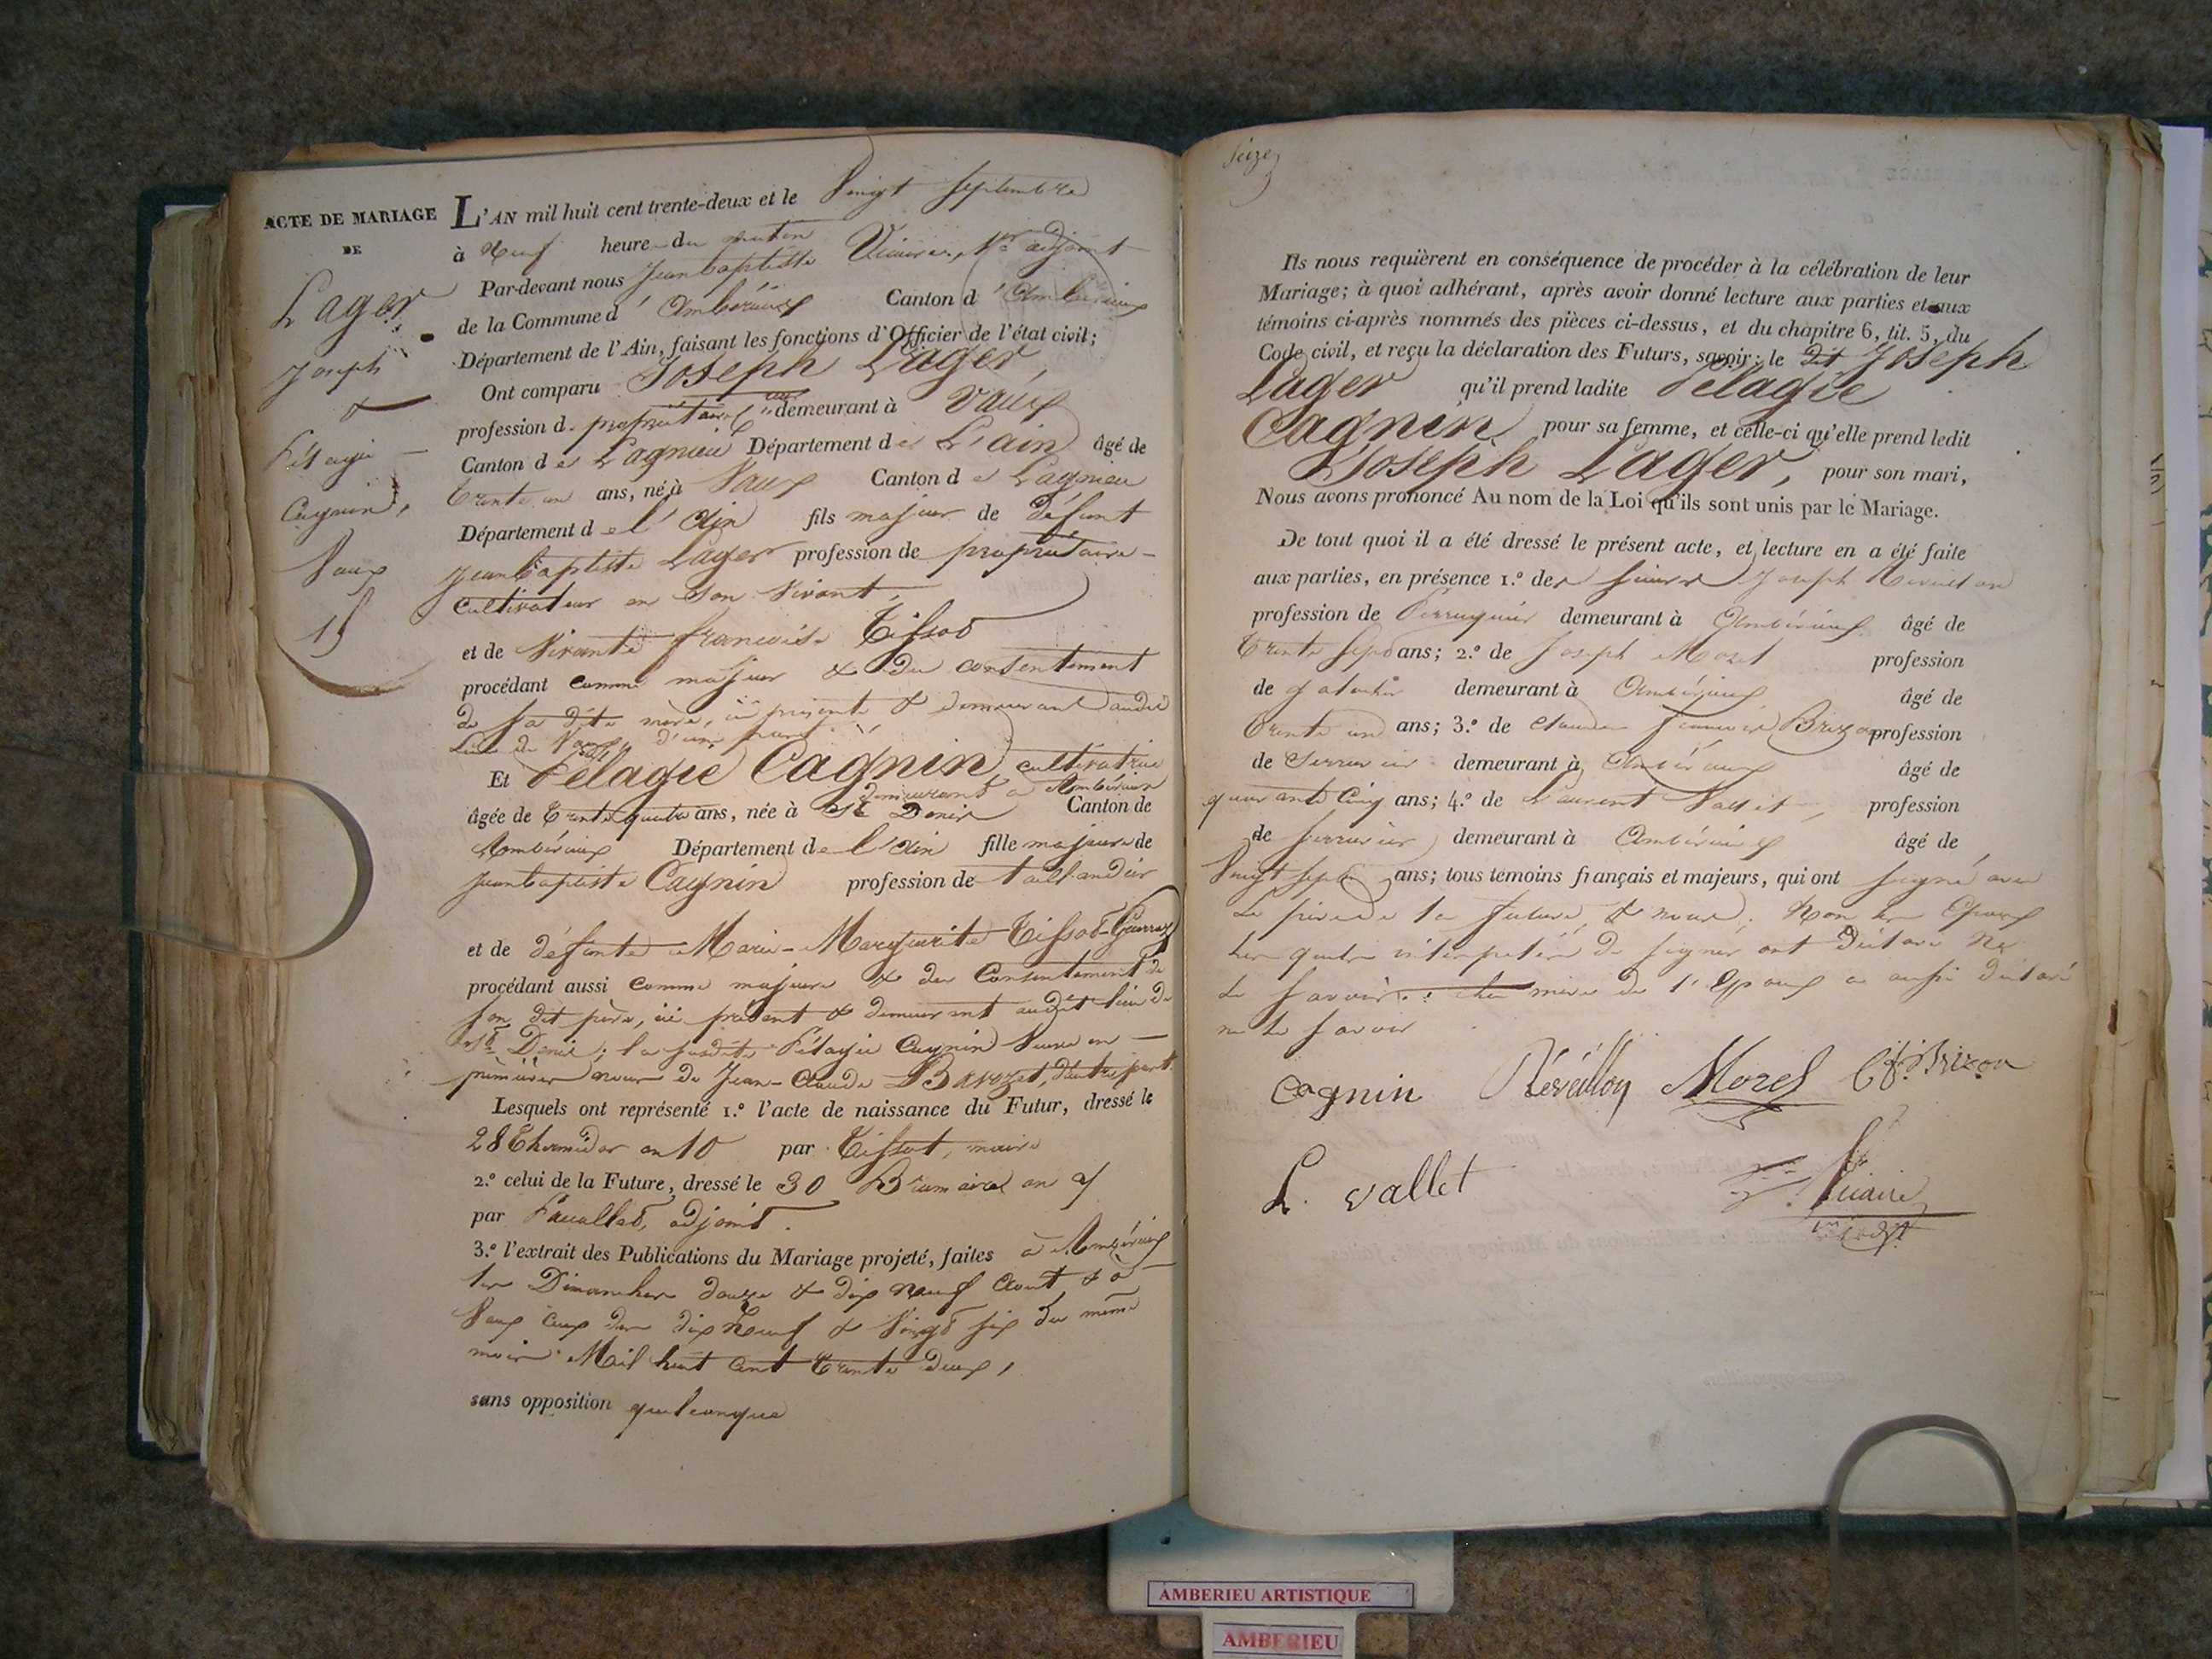 ACTE DE MARIAGE
DE
Lager
Joseph
&
Pélagie
Cagnin,
Vaux
15
L'AN mil huit cent trente-deux et le Vingt Septembre
à Neuf heure du matin
Par-devant nous Jean baptiste Vicaire, adjoint
de la Commune d'Ambérieux Canton d'Ambérieux
Département de l'Ain, faisant les fonctions d'Officier de l'état civil;
Ont comparu Joseph Lager,
profession de propriétaire demeurant à Vaux
Canton de Lagnieu Département de L'ain âgé de
trente un ans, né à Vaux Canton de Lagnieu
Département de l'Ain fils majeur de défunt
Jean baptiste Lager profession de propriétaire
Cultivateur en son vivant,
et de Vivante françoise Tissot
procédant comme majeur & du consentement
de sa dite mère, ici présente & demeurant audit
lieu de Vaux d'une part.
Et Pélagie Cagnin, cultivatrice
demeurant à Ambérieux
âgée de trente quatre ans, née à St Denis Canton de
Ambérieux Département de l'Ain fille majeure de
Jean baptiste Cagnin profession de taillandier
et de défunte Marie-Marguerite Tissot-Guerraz
procédant aussi comme majeure & du Consentement de
son dit père, ici présent & demeurant audit lieu de
St Denis; la susdite Pélagie Cagnin Veuve en
premières noces de Jean-Claude Barozet, d'autre part.
Lesquels ont représenté 1.º l'acte de naissance du Futur, dressé le
28 Thermidor an 10 par Tissot, maire
2.º celui de la Future, dressé le 30 Brumaire an 7
par adjoint.
3.º l'extrait des Publications du Mariage projeté, faites à Ambérieux
les Dimanches douze & dix neuf Aout & à
Vaux ceux des dix neuf & Vingt six du même
mois Mil huit cent trente deux,
sans opposition quelconque
Seize
Ils nous requièrent en conséquence de procéder à la célébration de leur
Mariage; à quoi adhérant, après avoir donné lecture aux parties et aux
témoins ci-après nommés des pièces ci-dessus, et du chapitre 6, tit. 5, du
Code civil, et reçu la déclaration des Futurs, savoir: le dit Joseph
Lager qu'il prend ladite Pélagie
Cagnin pour sa femme, et celle-ci qu'elle prend ledit
Joseph Lager, pour son mari,
Nous avons prononcé Au nom de la Loi qu'ils sont unis par le Mariage.
De tout quoi il a été dressé le présent acte, et lecture en a été faite
aux parties, en présence 1.º des sieurs Joseph Reveillon
profession de Perruquier demeurant à Ambérieux âgé de
trente sept ans; 2.º de Joseph Morel profession
de demeurant à Ambérieux âgé de
trente un ans; 3.º de Claude Brizon profession
de Serrurier demeurant à Ambérieux âgé de
quarante cinq ans; 4.º de Laurent Vallet, profession
de Serrurier demeurant à Ambérieux âgé de
Vingt sept ans; tous témoins français et majeurs, qui ont signé avec
le père de la future, & nous; Non les Epoux
lesquels interpellés de signer ont déclaré ne
le savoir; mère de l'Epoux a aussi déclaré
ne le savoir
Cagnin Réveillon Morel Brizon
L. vallet Vicaire